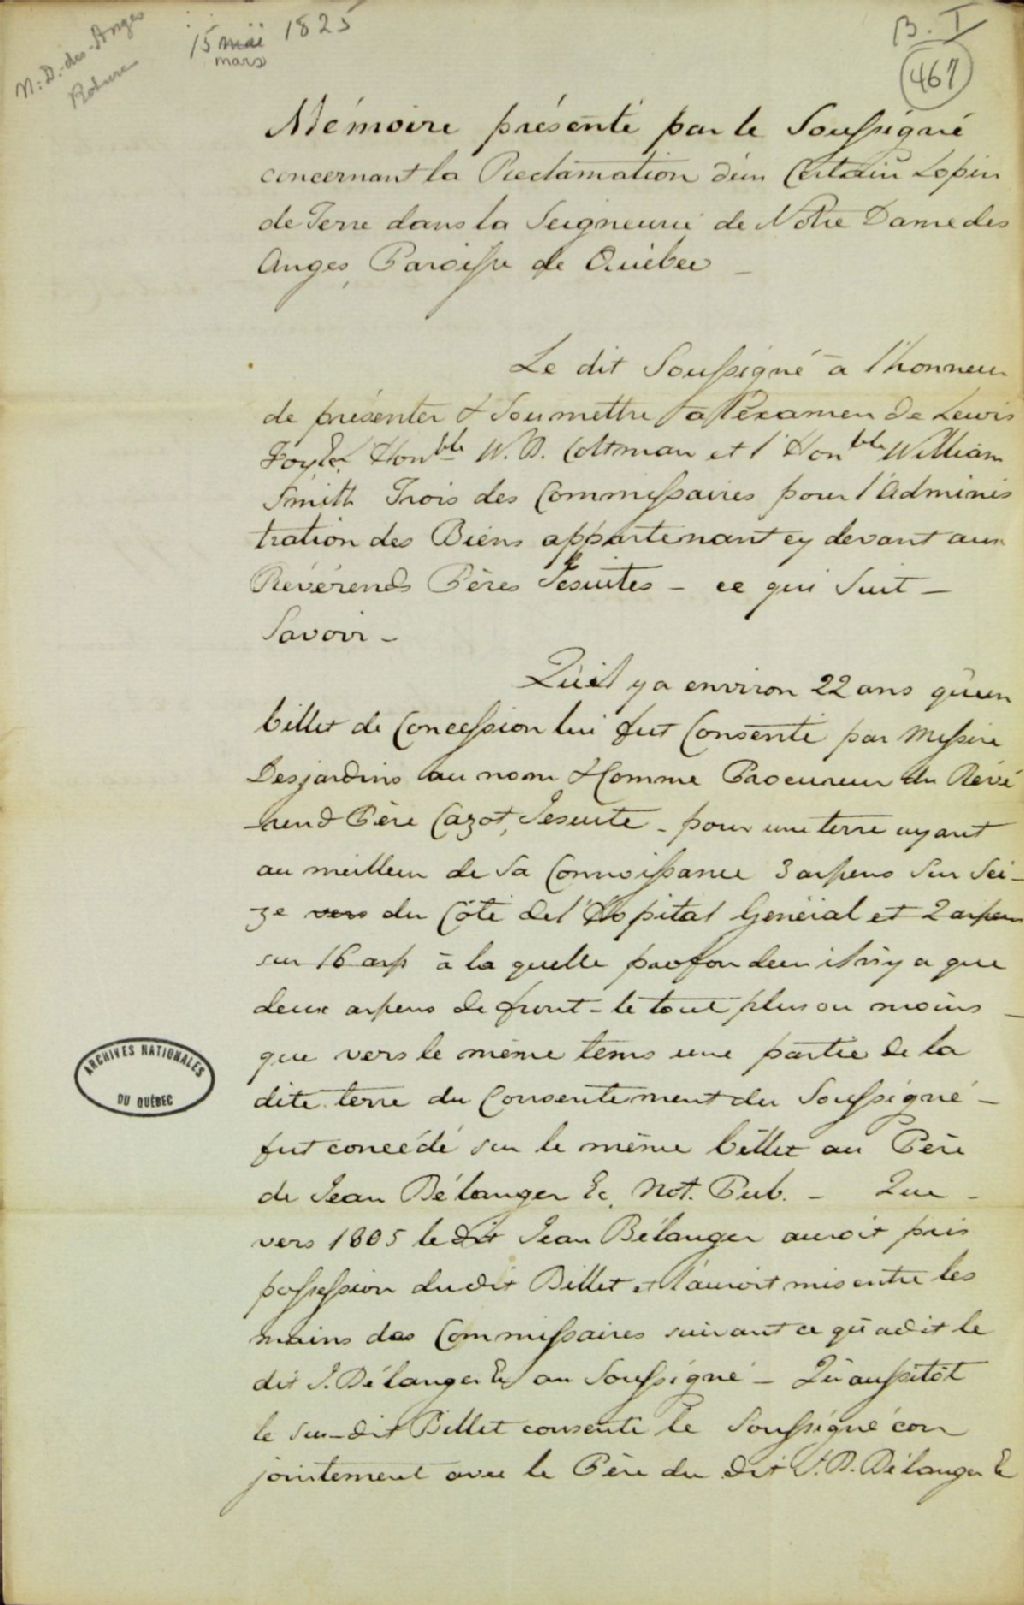 N.D.-des-Anges
15 mai 1825
mars
B. I
467
Mémoire présenté par le Soussigné
concernant la Reclámation d'ún Certain Lopin
de Terre dans la Seigneurie de Notre Dame des
Anges, Paroisse de Québec —
Le dit Soussigné à l'honneur
de présenter & Soumettre a l'éxamen de Lewis
Foy Honble W. B. Coltman et l'Honble William
Smith Trois des Commissaires pour l'Adminis
tration des Biens appartenant cy devant aux
Révérends Pères Jesuites — ce qui Suit —
Savoir —
Qu'il y a environ 22 ans qu'un
billet de Concession lui fut Consenti par Messire
Desjardins au nom & Comme Procureur du Révé
-rend Père Cazot, Jesuite — pour une terre ayant
au meilleur de Sa Connoissance 3 arpens Sur Sei-
ze vers du Côté de l'Hopital Général et 2 arpens
sur 16 arp à la quelle profondeur il n'y a que
deux arpens de front — le tout plus ou moins —
que vers le même tems une partie de la
dite terre du Consentement du Soussigné —
fut concédé sur le même billet au Père
de Jean Bélanger Ec. Not. Pub. — Que —
vers 1805 le dit Jean Bélanger auroit pris
possession du dit Billet et l'auroit mis entre les
mains des Commissaires suivant ce qu'a dit le
dit J. Bélanger Ec au Soussigné — Qu'aussitôt
le Sus-dit Billet consenti le Soussigné con
jointement avec le Père du dit J. B. Bélanger Ec
ARCHIVES NATIONALES
DU QUÉBEC